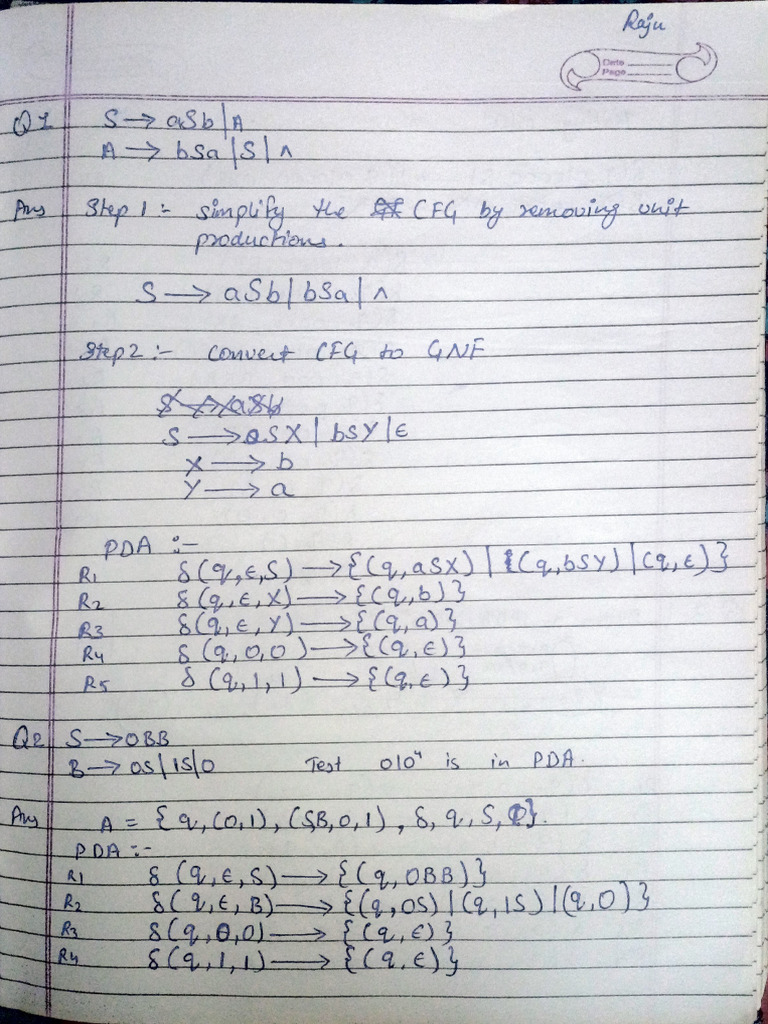 Raju
Date
Page
Q1 S → aSb | A
A → bSa | S | ∧
Ans Step 1:- simplify the CFG by removing unit
productions.
S → aSb | bSa | ∧
Step 2:- convert CFG to GNF
S → aSb
S → aSX | bSY | ε
X → b
Y → a
PDA :-
R1 δ(q, ε, S) → {(q, aSX) | (q, bSY) | (q, ε)}
R2 δ(q, ε, X) → {(q, b)}
R3 δ(q, ε, Y) → {(q, a)}
R4 δ(q, 0, 0) → {(q, ε)}
R5 δ(q, 1, 1) → {(q, ε)}
Q2 S → 0BB
B → 0S | 1S | 0 Test 010⁴ is in PDA.
Ans A = {q, (0, 1), (S, B, 0, 1), δ, q, S, Φ}.
PDA :-
R1 δ(q, ε, S) → {(q, 0BB)}
R2 δ(q, ε, B) → {(q, 0S) | (q, 1S) | (q, 0)}
R3 δ(q, 0, 0) → {(q, ε)}
R4 δ(q, 1, 1) → {(q, ε)}